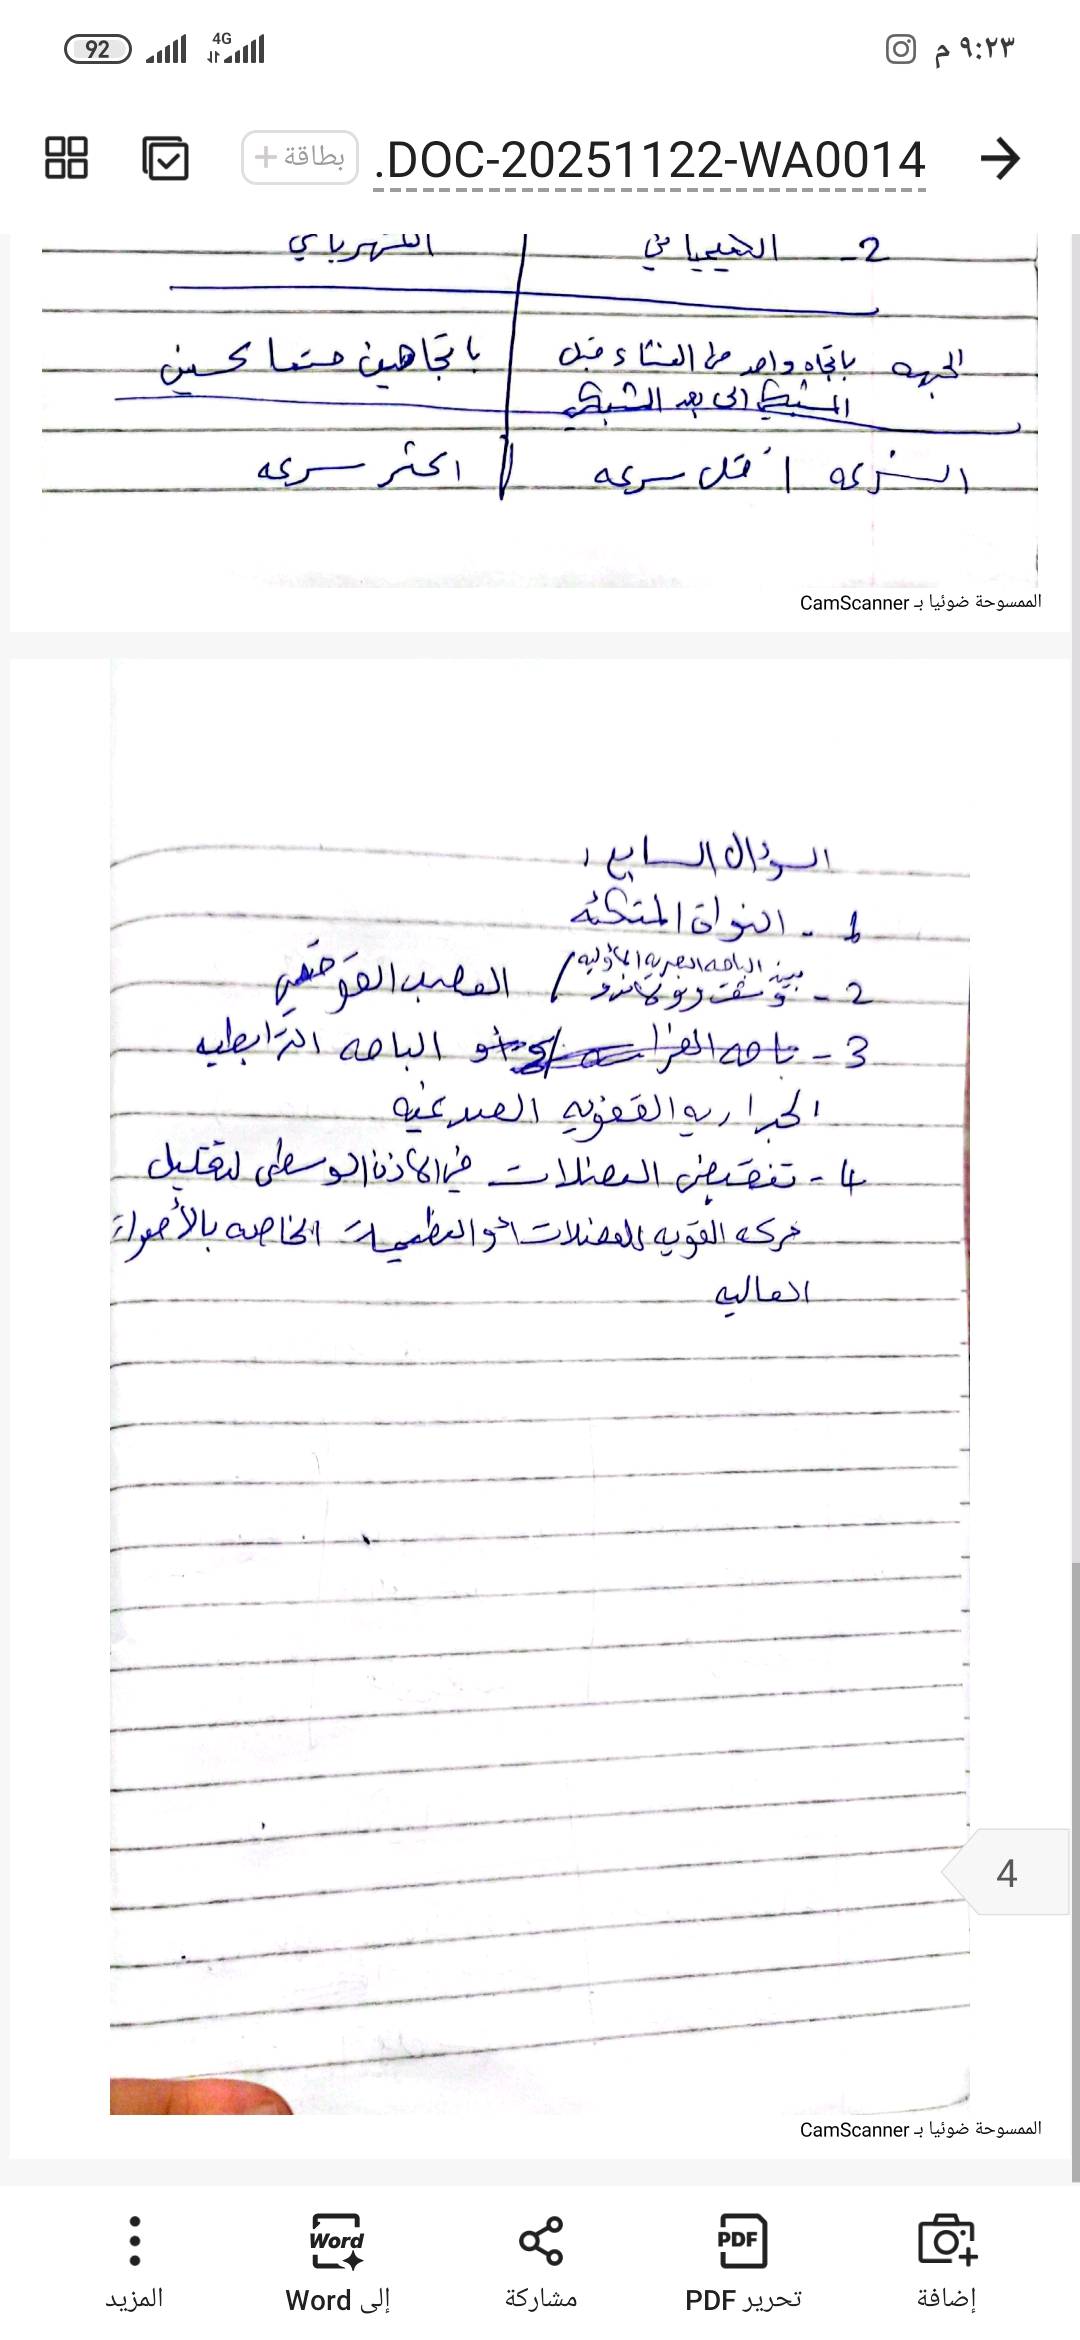 ٩:٢٣ م
4G
92
DOC-20251122-WA0014.
بطاقة +
2- الكيميائي الكهربائي
الجهه باتجاه واحد من الغشاء قبل باتجاهين متعاكسين
المشبكي الى بعد المشبكي
السرعه أقل سرعه اكثر سرعه
الممسوحة ضوئيا بـ CamScanner
السؤال السابع :
1- النواة المتكئه
بين الباحه البصريه الاوليه
2- / العصب القوقعي
3- باحه القرا او الباحه الترابطيه
الجداريه القفويه الصدغيه
4- تنقبض العضلات في الاذن الوسطى لتقليل
حركه القويه للعضلات أو العظيمات الخاصه بالأصوات
العاليه
4
الممسوحة ضوئيا بـ CamScanner
إضافة
PDF
تحرير PDF
مشاركة
Word
إلى Word
المزيد